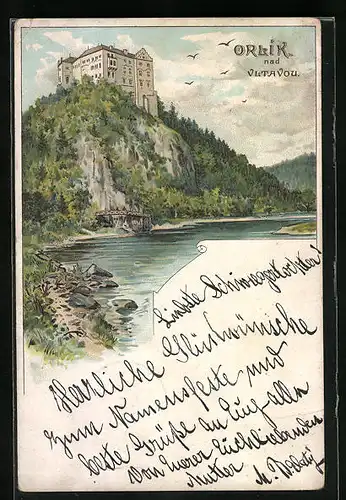 ORLÍK
nad
VLTAVOU.
Liebste Schwiegertochter!
Herzliche Glückwünsche
zum Namensfeste und
beste Grüße an Euch alle
von Eurer Euch liebenden
Mutter